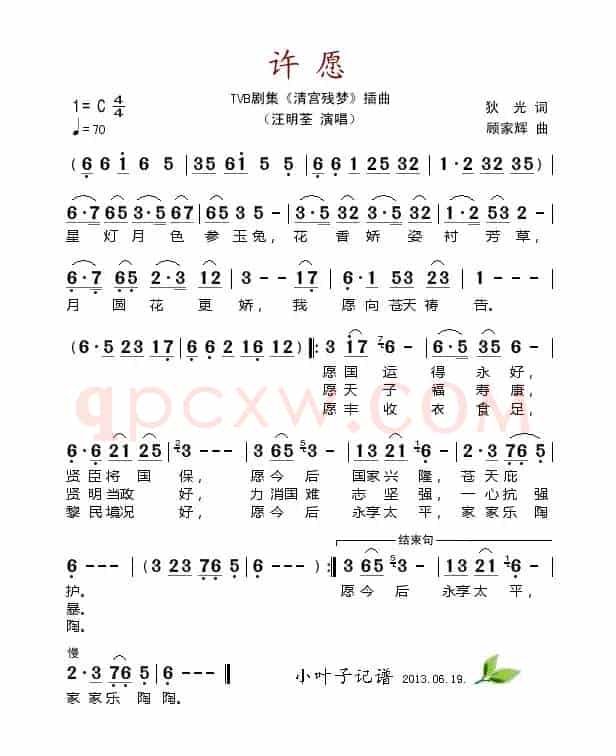 许 愿
1= C 4/4
TVB剧集《清宫残梦》插曲
狄 光 词
♩= 70
（汪明荃 演唱）
顾家辉 曲
( 6 6 i 6 5 | 35 61 5 5 | 6·1 25 32 | 1·2 32 35 )
6·7 65 3·5 67 | 65 3 5 - | 3·5 32 35 32 | 1·2 53 2 - |
星 灯 月 色 参 玉 兔， 花 香 娇 姿 衬 芳 草，
6·7 65 2·3 12 | 3 - - 17 | 6·1 53 23 | 1 - - - |
月 圆 花 更 娇， 我 愿 向 苍天 祷 告。
( 6·5 23 17 | 6 6 2 16 12 ) |: 3 i7 7 6 - | 6·5 35 6 - |
愿 国 运 得 永 好，
愿 天 子 福 寿 康，
愿 丰 收 衣 食 足，
qpcxw.com
6·6 21 25 | 2 3 - - - | 3 65 5 3 - | 13 21 1 6 - | 2·3 76 5 |
贤 臣将 国 保， 愿 今 后 国家 兴 隆， 苍 天 庇
贤 明当政 好， 力 消国 难 志 坚 强， 一 心抗 强
黎 民境况 好， 愿 今 后 永享 太 平， 家 家乐 陶
结束句
6 - - - | ( 3 23 76 5 | 6 - - - ) :| 3 65 5 3 - | 13 21 1 6 - |
护。 愿 今 后 永享 太 平，
暴。
陶。
慢
2·3 76 5 | 6 - - - ‖
家 家乐 陶 陶。
小叶子记谱 2013.06.19.